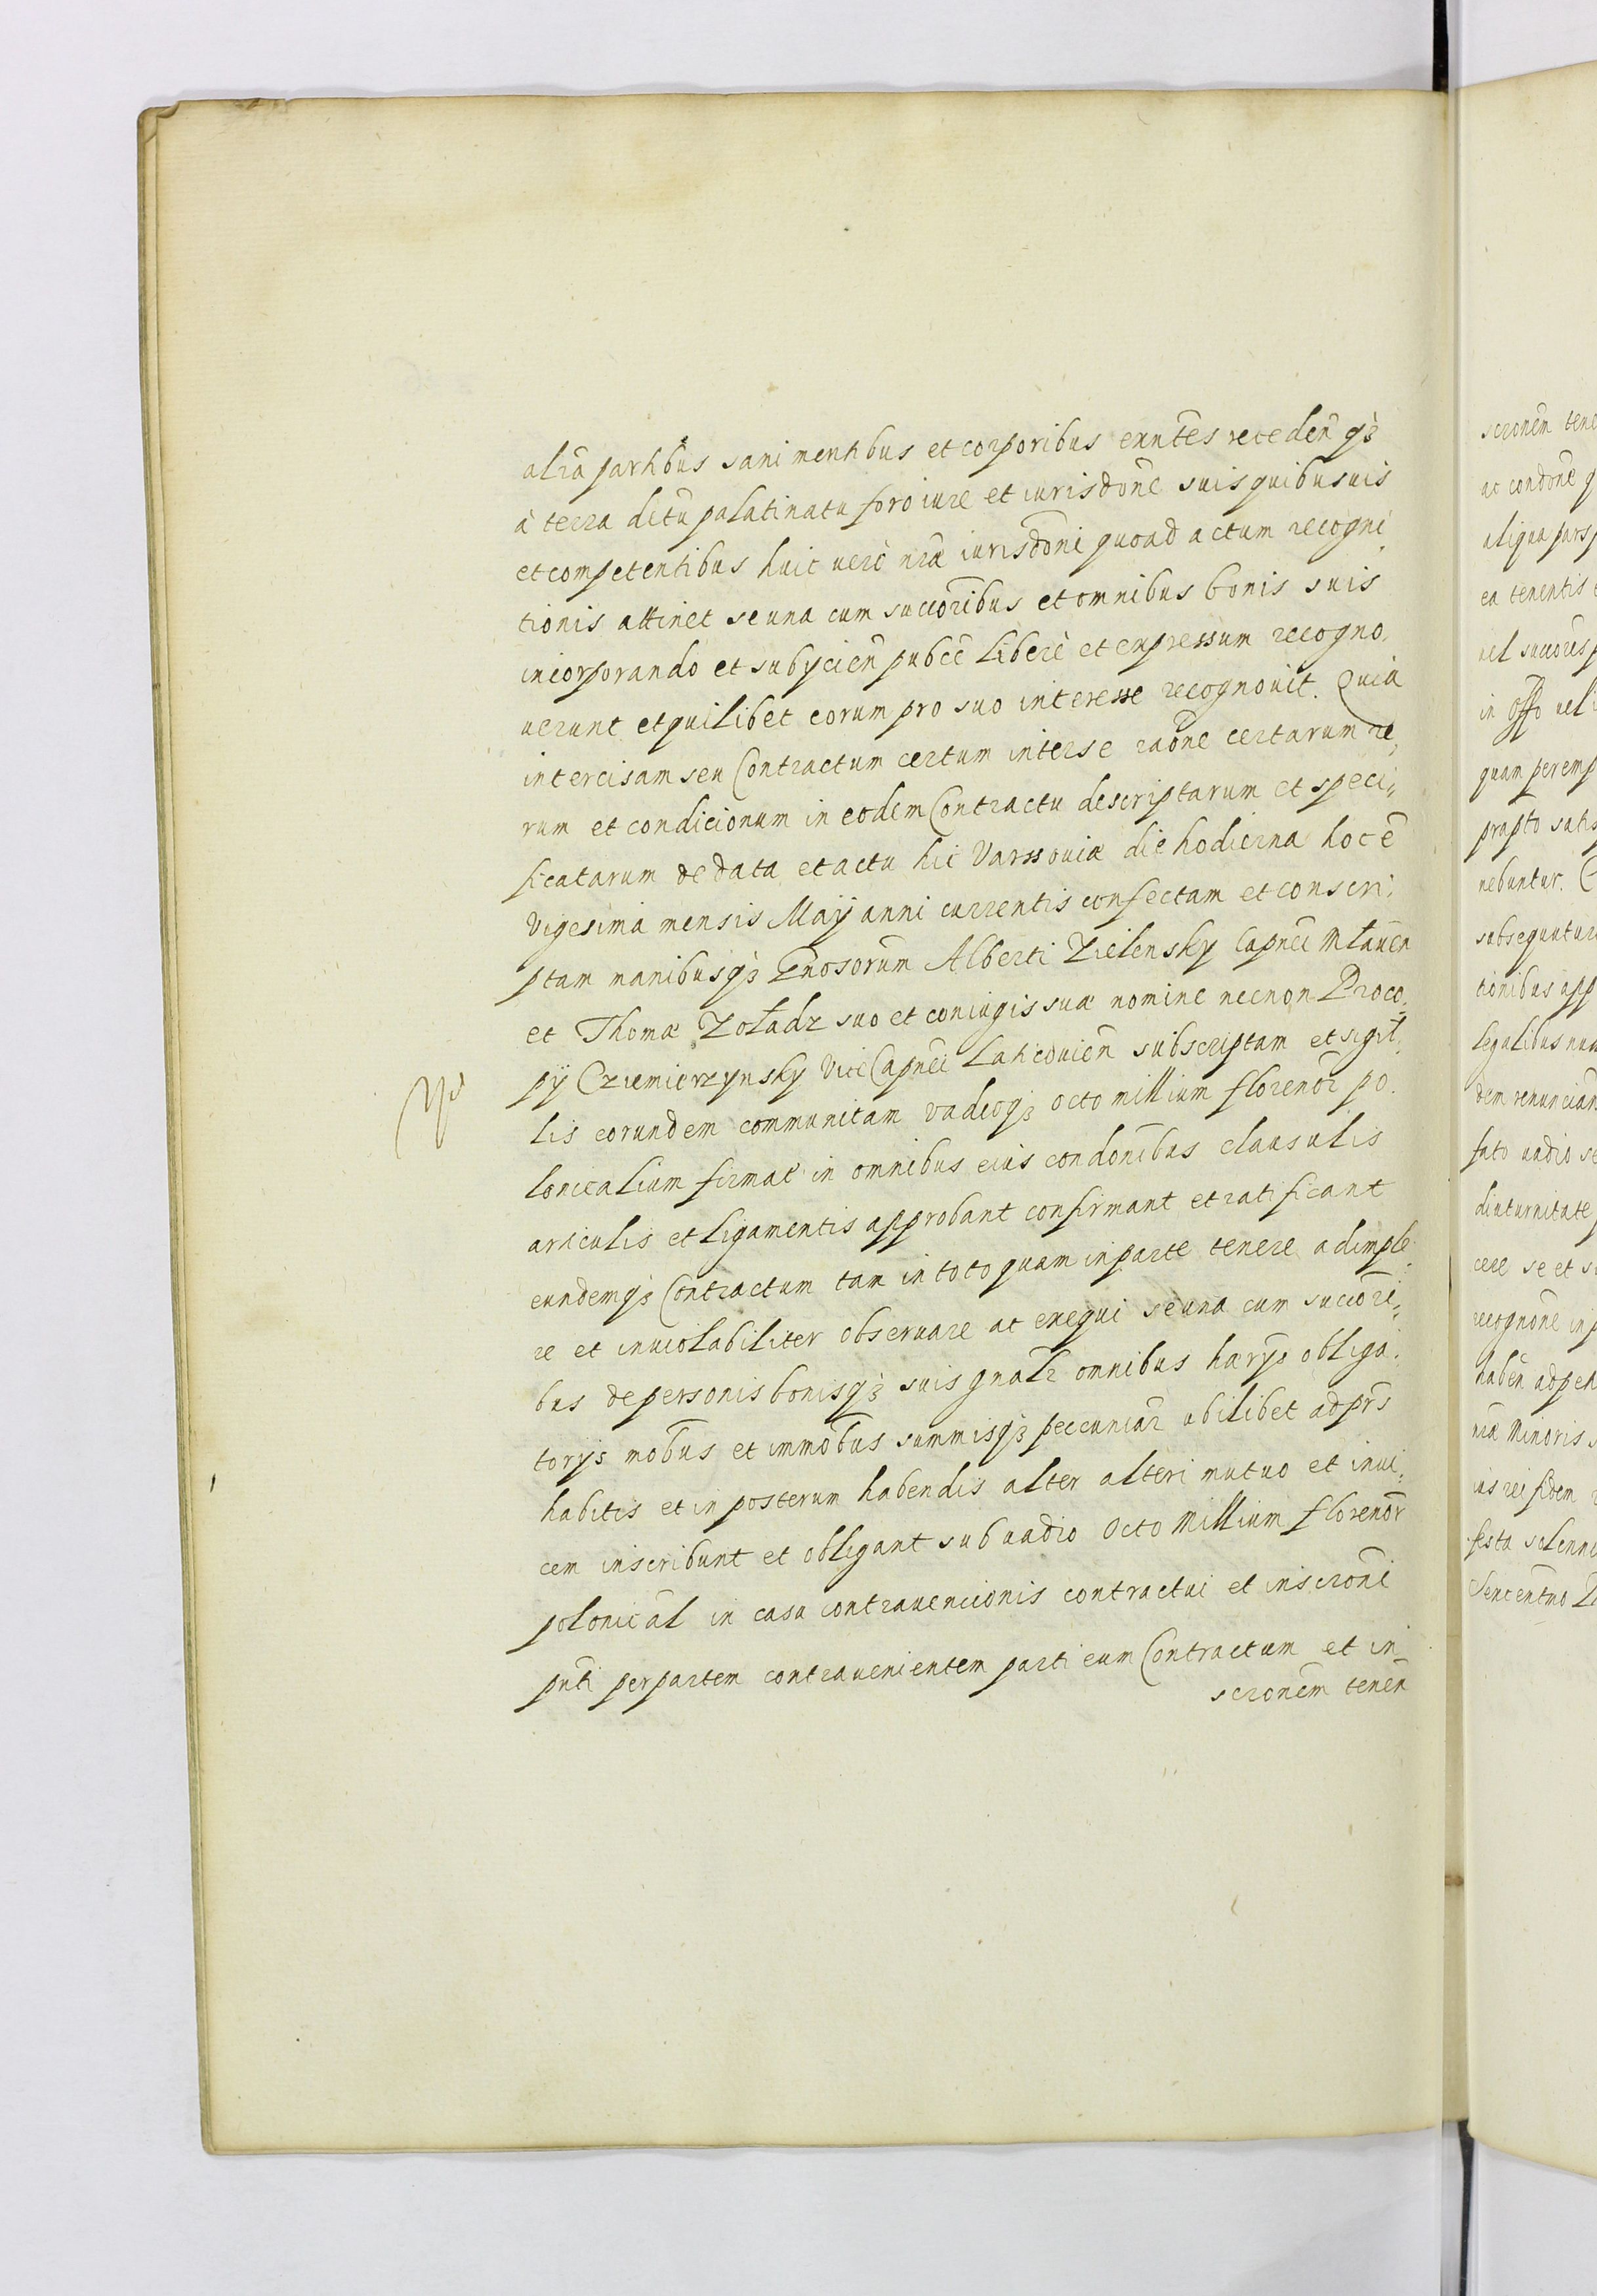 alrã partibus sani mentibus et corporibus exñtes recedeñ q3
à terra dictu palatinatu foro iure et iurisdõne suis quibusuis
et competentibus huic verè nrã iurisdõni quoad actum recogni
tionis attinet se una cum succõribus et omnibus bonis suis
incorporando et subycieñ pubcẽ liberè et expressum recogno,
uerunt et quilibet eorum pro suo interesse recognouit. Quia
intercisam seu Contractum certum inter se raõne certarum re,
rum et condicionum in eodem Contractu descriptarum et speci,,
ficatarum de data et actu hic Varssouiæ die hodierna hoc ẽ
Vigesima mensis Maÿ anni currentis confectam et conscri,
ptam manibusq3 Gñosorum Alberti Zielensky Capnei Mławeñ
et Thomæ Zołądz suo et coniugis suæ nomine necnon Proco,
pÿ Cziemierzynsky Vice Capnei Laticouieñ subscriptam et sigil,
lis eorundem communitam vadioq3 octo millium florenor̃ po.
lonicalium firmat̃ in omnibus eius condõnibus clausulis
articulis et ligamentis approbant confirmant et ratificant
eundemq3 Contractum tam in toto quam in parte tenere adimple
re et inuiolabiliter obseruare ac exequi se una cum succõri,,
bus de personis bonisq3 suis gnalr̃ omnibus haryo obliga.
torÿs mobus et immobus summisq3 peccuniar̃ ubilibet ad prs̃
habitis et in posterum habendis alter alteri mutuo et inui,
cem inscribunt et obligant sub vadio Octo Millium florenor̃
polonicãl in casu contrauencionis contractui et inscrõni
pñti per partem contrauenientem parti eum Contractum et in
scrõnem teneñ
scrõnem tene
ac condõne q
aliqua pars p
ea tenentis
uel succores p
in Offo uel
quam peremp
prapto satis
nebuntur.
subsequutur
tionibus app
legalibus nu
dem renuncian
fato vadio se
diuturnitate
cere se et s
recognone in p
habeñ ad peñ
nrã Minoris s
ius rei fidem
festa solenni